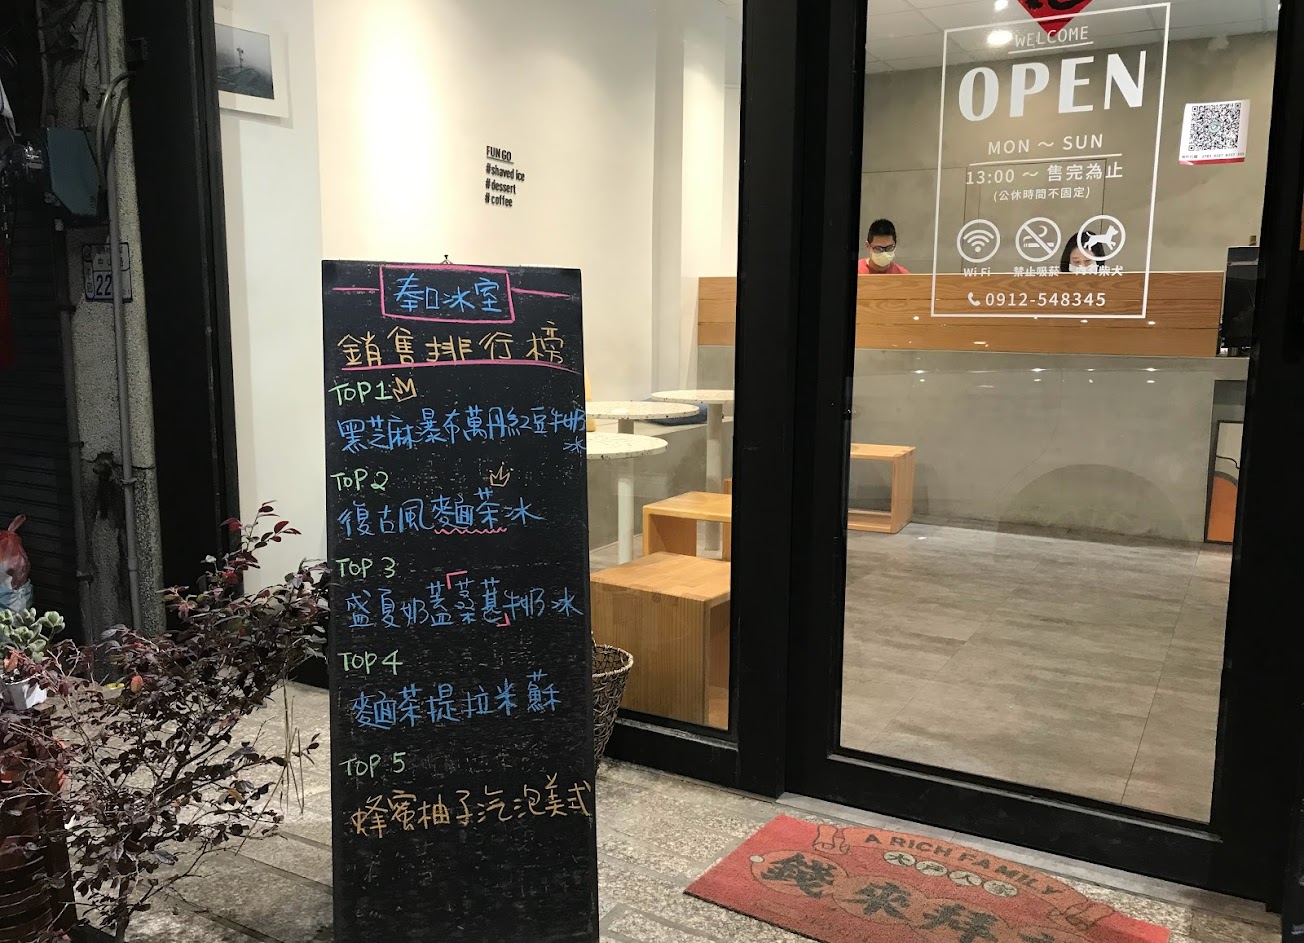 WELCOME
OPEN
MON ～ SUN
13:00 ～ 售完為止
(公休時間不固定)
Wi Fi
禁止吸菸
內有柴犬
0912-548345
FUN GO
#shaved ice
#dessert
#coffee
奉口冰室
銷售排行榜
TOP 1
黑芝麻瀑布萬丹紅豆牛奶冰
TOP 2
復古風麵茶冰
TOP 3
盛夏奶蓋「桑葚」牛奶冰
TOP 4
麵茶提拉米蘇
TOP 5
蜂蜜柚子汽泡美式
22
A RICH FAMILY
大戶人家
錢來拜